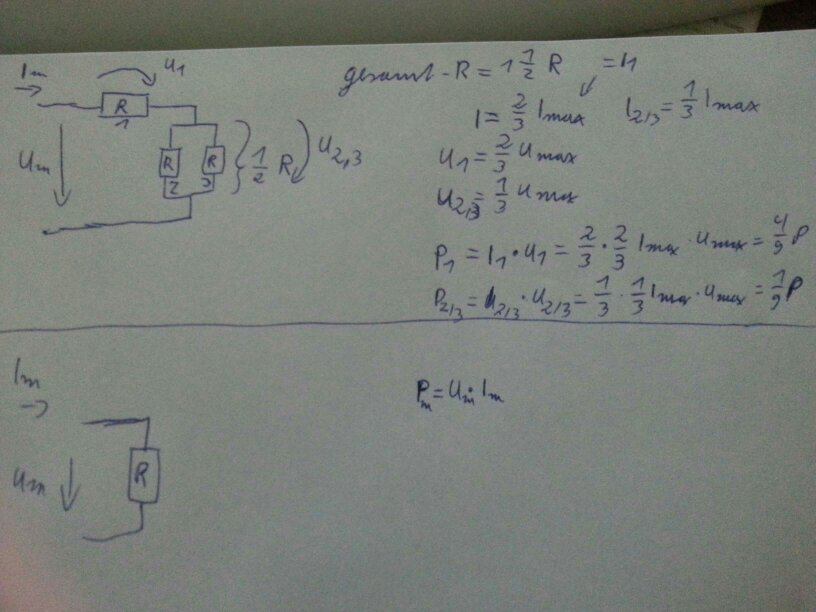 Im
U1
R
1
Um
R
R
2
3
1/2 R
U2,3
gesamt - R = 1 1/2 R
= I1
I = 2/3 Imax
I2/3 = 1/3 Imax
U1 = 2/3 Umax
U2/3 = 1/3 Umax
P1 = I1 · U1 = 2/3 · 2/3 Imax · Umax = 4/9 P
P2/3 = I2/3 · U2/3 = 1/3 · 1/3 Imax · Umax = 1/9 P
Im
Um
R
Pm = Um · Im